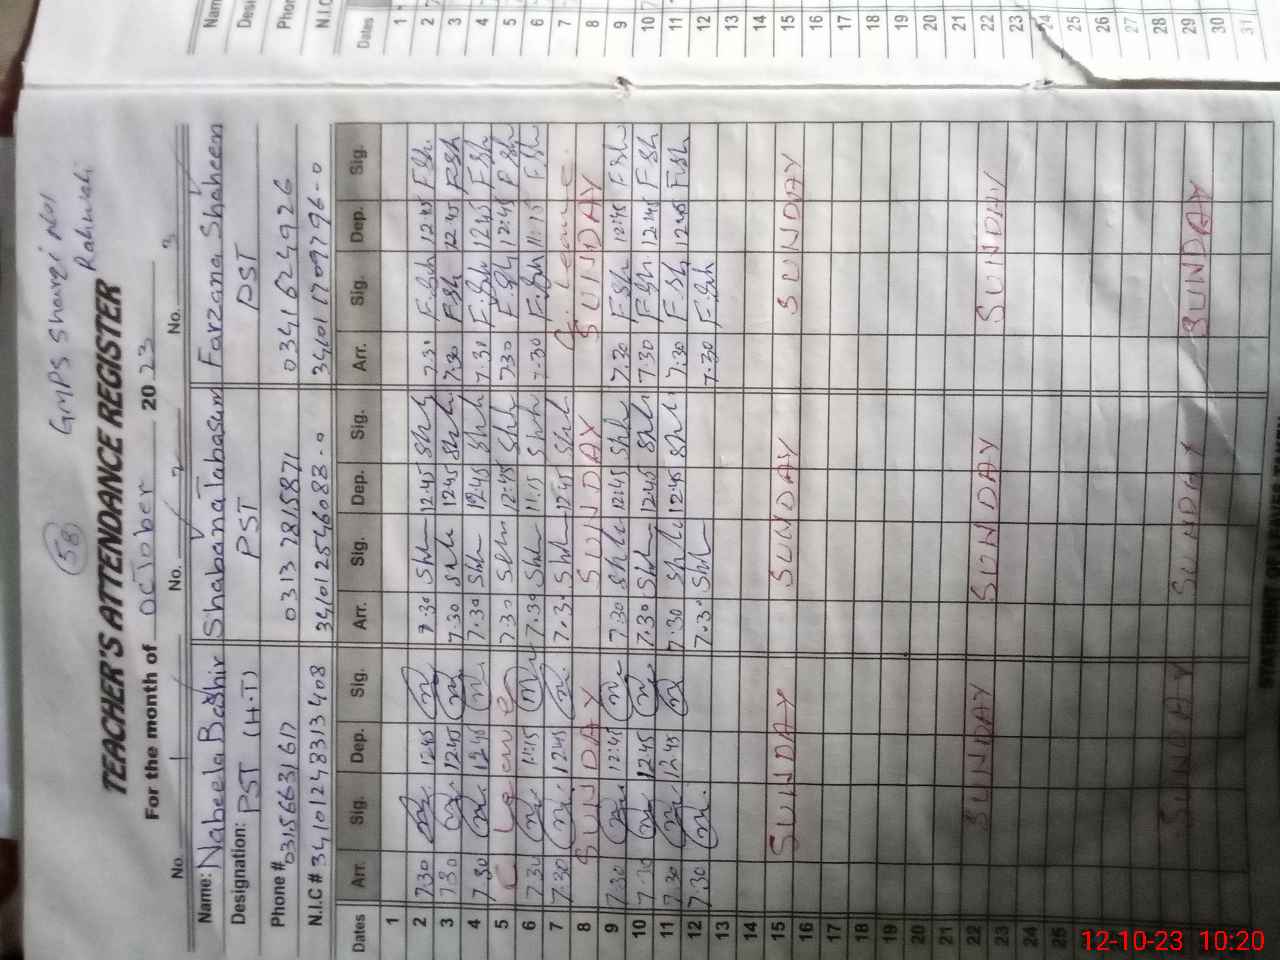 58 GMPS Sharqi No1
Rahwali
TEACHER'S ATTENDANCE REGISTER
For the month of October 2023
No. 1 No. 2 No. 3
Name: Nabeela Bashir Shabana Tabasum Farzana Shaheen
Designation: PST (H.T) PST PST
Phone # 03156631617 0313 7815871 0341 6249926
N.I.C # 34101248331 3408 34101254608 8-0 34101170979 6-0
Dates Arr. Sig. Dep. Sig. Arr. Sig. Dep. Sig. Arr. Sig. Dep. Sig.
1
2 7.30 12.45 7.30 Shh 12.45 Shh 7.30 F.Sh 12.45 F.Sh
3 7.30 12.45 7.30 Shh 12.45 Shh 7.30 F.Sh 12.45 F.Sh
4 7.30 12.45 7.30 Shh 12.45 Shh 7.30 F.Sh 12.45 F.Sh
5 C Leave 7.30 Shh 12:45 Shh 7.30 F.Sh 12:45 F.Sh
6 7.30 11:15 7.30 Shh 11:15 Shh 7.30 F.Sh 11:15 F.Sh
7 7.30 12.45 7.30 Shh 12.45 Shh C. Leave
8 SUNDAY SUNDAY SUNDAY
9 7.30 12:45 7.30 Shh 12:45 Shh 7.30 F.Sh 12:45 F.Sh
10 7.30 12.45 7.30 Shh 12.45 Shh 7.30 F.Sh 12.45 F.Sh
11 7.30 12.45 7.30 Shh 12.45 Shh 7.30 F.Sh 12.45 F.Sh
12 7.30 7.30 Shh 7.30 F.Sh
13
14
15 SUNDAY SUNDAY SUNDAY
16
17
18
19
20
21
22 SUNDAY SUNDAY SUNDAY
23
24
25
SUNDAY SUNDAY SUNDAY
Name
Phone
N.I.C
Dates
1
2
3
4
5
6
7
8
9
10
11
12
13
14
15
16
17
18
19
20
21
22
23
24
25
26
27
28
29
30
31
12-10-23 10:20